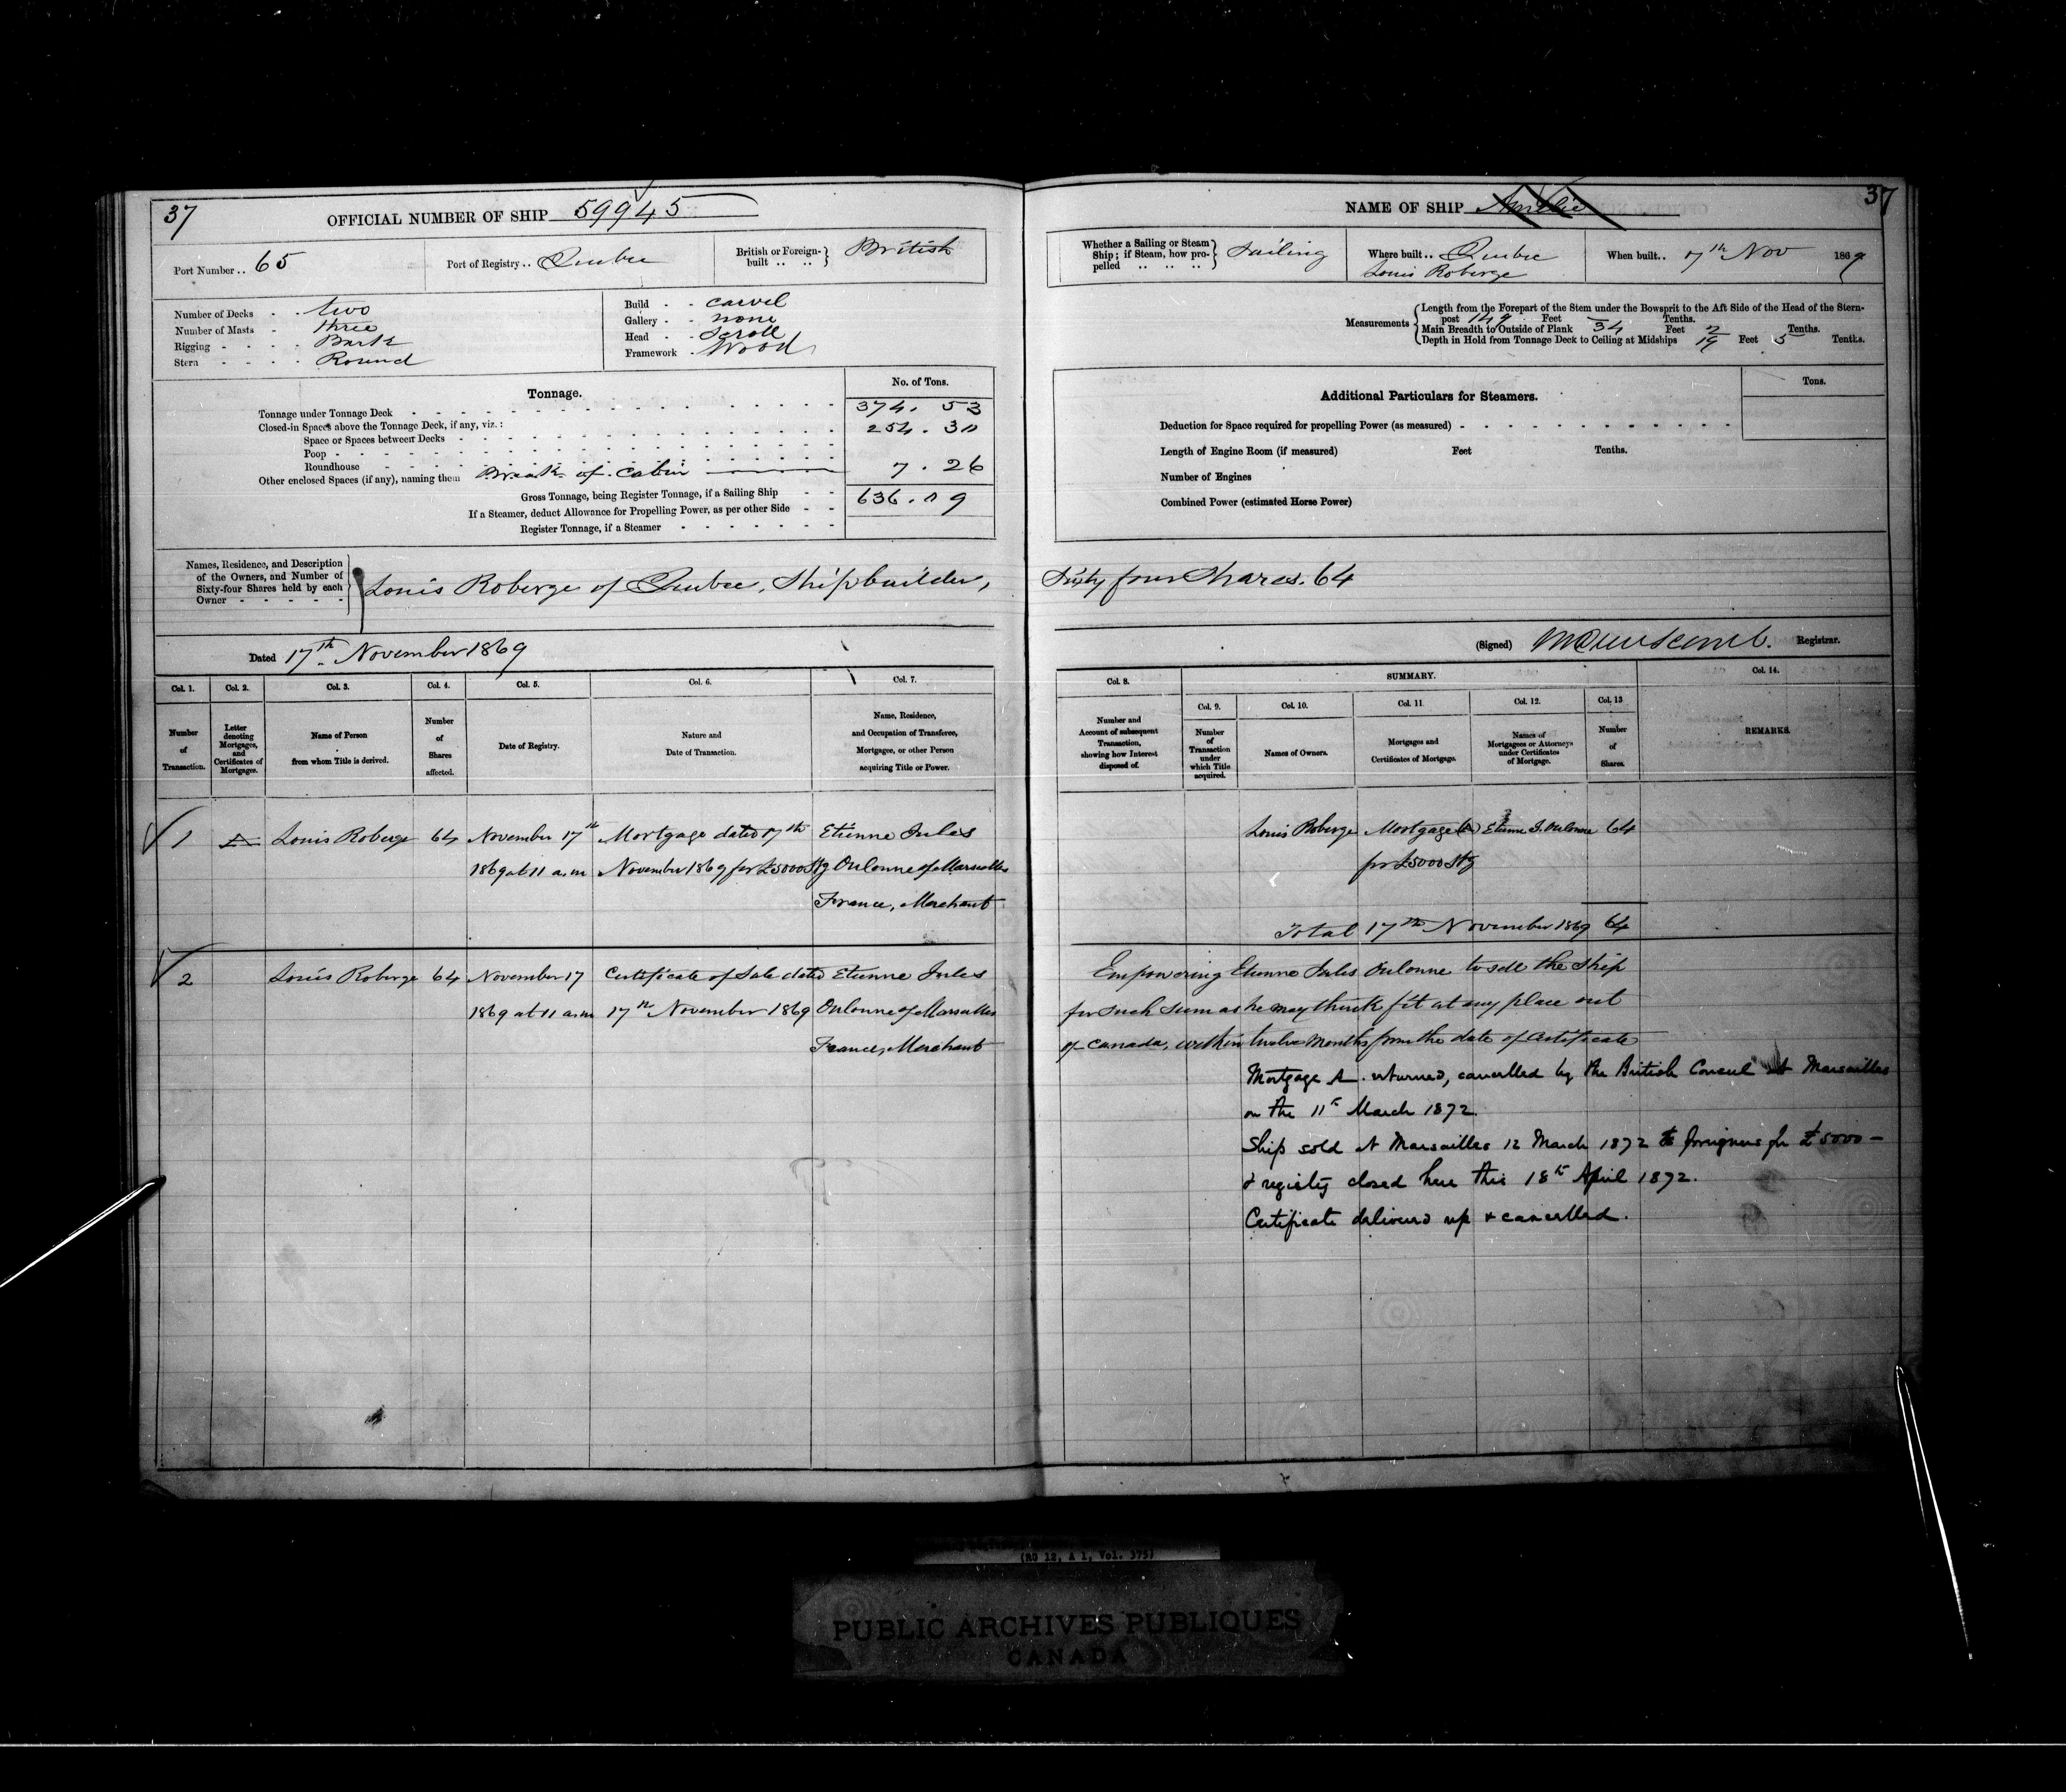 37
OFFICIAL NUMBER OF SHIP 59945
Port Number.. 65
Port of Registry.. Quebec
British or Foreign-built .. ..} British
Number of Decks - - two
Number of Masts - three
Rigging - - - - Bark
Stern - - - - Round
Build - - carvel
Gallery - - none
Head - - Scroll
Framework - Wood
Tonnage.
No. of Tons.
Tonnage under Tonnage Deck 374. 53
Closed-in Spaces above the Tonnage Deck, if any, viz.:
Space or Spaces between Decks 254. 30
Poop
Roundhouse
Other enclosed Spaces (if any), naming them Break of Cabin 7. 26
Gross Tonnage, being Register Tonnage, if a Sailing Ship 636. 09
If a Steamer, deduct Allowance for Propelling Power, as per other Side
Register Tonnage, if a Steamer
Names, Residence, and Description
of the Owners, and Number of
Sixty-four Shares held by each
Owner
Louis Roberge of Quebec, Shipbuilder,
Dated 17th November 1869
Col. 1. Col. 2. Col. 3. Col. 4. Col. 5. Col. 6. Col. 7.
Number of Transaction.
Letter denoting Mortgages, and Certificates of Mortgages.
Name of Person from whom Title is derived.
Number of Shares affected.
Date of Registry.
Nature and Date of Transaction.
Name, Residence, and Occupation of Transferee, Mortgagee, or other Person acquiring Title or Power.
1 A Louis Roberge 64 November 17th Mortgage dated 17th Etienne Jules
1869 at 11 a.m November 1869 for £5000 Stg Oulonne of Marseilles
France, Merchant
2 Louis Roberge 64 November 17 Certificate of Sale dated Etienne Jules
1869 at 11 a.m 17th November 1869 Oulonne of Marseilles
France, Merchant
NAME OF SHIP Amelie
37
Whether a Sailing or Steam Ship; if Steam, how propelled .. .. ..} Sailing
Where built.. Quebec
Louis Roberge
When built.. 17th Nov 1869
Measurements
Length from the Forepart of the Stem under the Bowsprit to the Aft Side of the Head of the Stern-
post 149 Feet Tenths.
Main Breadth to Outside of Plank 34 Feet 2 Tenths.
Depth in Hold from Tonnage Deck to Ceiling at Midships 19 Feet 5 Tenths.
Additional Particulars for Steamers.
Tons.
Deduction for Space required for propelling Power (as measured)
Length of Engine Room (if measured) Feet Tenths.
Number of Engines
Combined Power (estimated Horse Power)
Sixty four Shares. 64
(Signed) Registrar.
Col. 8. SUMMARY. Col. 14.
Col. 9. Col. 10. Col. 11. Col. 12. Col. 13
Number and Account of subsequent Transaction, showing how Interest disposed of.
Number of Transaction under which Title acquired.
Names of Owners.
Mortgages and Certificates of Mortgage.
Names of Mortgagees or Attorneys under Certificates of Mortgage.
Number of Shares.
REMARKS.
Louis Roberge Mortgage (A) Etienne J. Oulonne 64
for £5000 Stg
Total 17th November 1869 64
Empowering Etienne Jules Oulonne to sell the Ship
for such sum as he may think fit at any place out
of Canada, within twelve months from the date of Certificate
Mortgage A. returned, cancelled by the British Consul at Marseilles
on the 11th March 1872.
Ship sold at Marseilles 12 March 1872 to foreigners for £5000 -
& registry closed here this 18th April 1872.
Certificate delivered up & cancelled.
(RG 12, A 1, Vol. 375)
PUBLIC ARCHIVES PUBLIQUES
CANADA